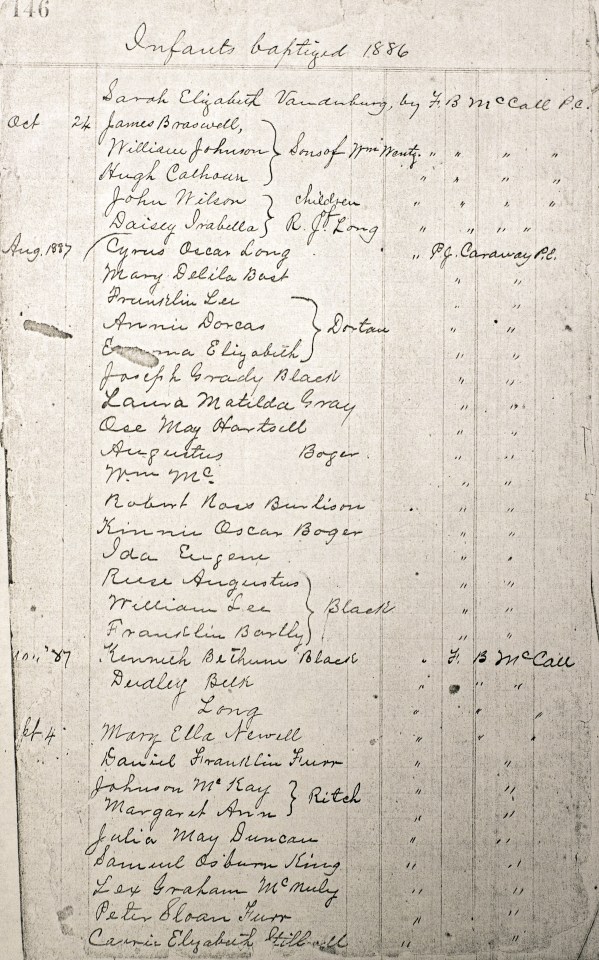 146
Infants baptized 1886
Sarah Elizabeth Vanderburg, by F. B McCall P.C.
Oct 24 James Braswell,
William Johnson } Sons of Wm Wentz. " " " "
Hugh Calhoun " " " "
John Wilson } children " " " "
Daisey Irabella R. J. Long " " " "
Aug. 1887 Cyrus Oscar Long " P.J. Caraway P.C.
Mary Delila Bost " "
Franklin Lee
Annie Dorcas } Dorton " "
Elizabeth " "
Joseph Grady Black " "
Laura Matilda Gray " "
Ose May Hartsell " "
Augustus Boger " "
Wm Mc. " "
Robert Ross Burlison " "
Kinnie Oscar Boger " "
Ida Eugene " "
Reese Augustus " "
William Lee } Black " "
Franklin Bartly " "
87 Kenneth Bethune Black " F. B McCall
Dudley Belk " "
Long " " "
4 Mary Ella Newell " " "
Daniel Franklin Furr " "
Johnson McKay } Ritch " "
Margaret Ann " "
Julia May Duncan " "
Samuel Osburn King " "
Lex Graham McNuly " "
Peter Sloan Furr " "
Carrie Elizabeth " "